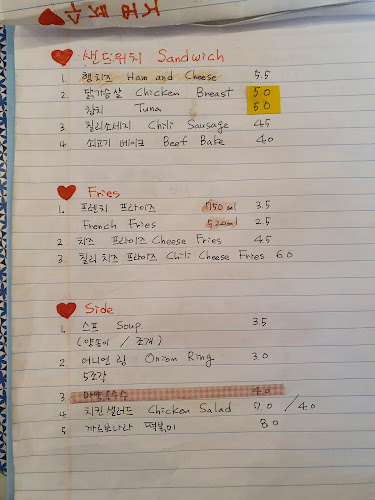 샌드위치 Sandwich
1. 햄치즈 Ham and Cheese 5.5
2. 닭가슴살 Chicken Breast 5.0
참치 Tuna 5.0
3. 칠리소세지 Chili Sausage 4.5
4. 쇠고기 베이크 Beef Bake 4.0
Fries
1. 프렌치 프라이즈 750ml 3.5
French Fries 520ml 2.5
2. 치즈 프라이즈 Cheese Fries 4.5
3. 칠리 치즈 프라이즈 Chili Cheese Fries 6.0
Side
1. 스프 Soup 3.5
(양송이 / 조개)
2. 어니언 링 Onion Ring 3.0
5조각
3. 마약옥수수 4.0
4 치킨샐러드 Chicken Salad 7.0 / 4.0
5 까르보나라 떡볶이 8.0